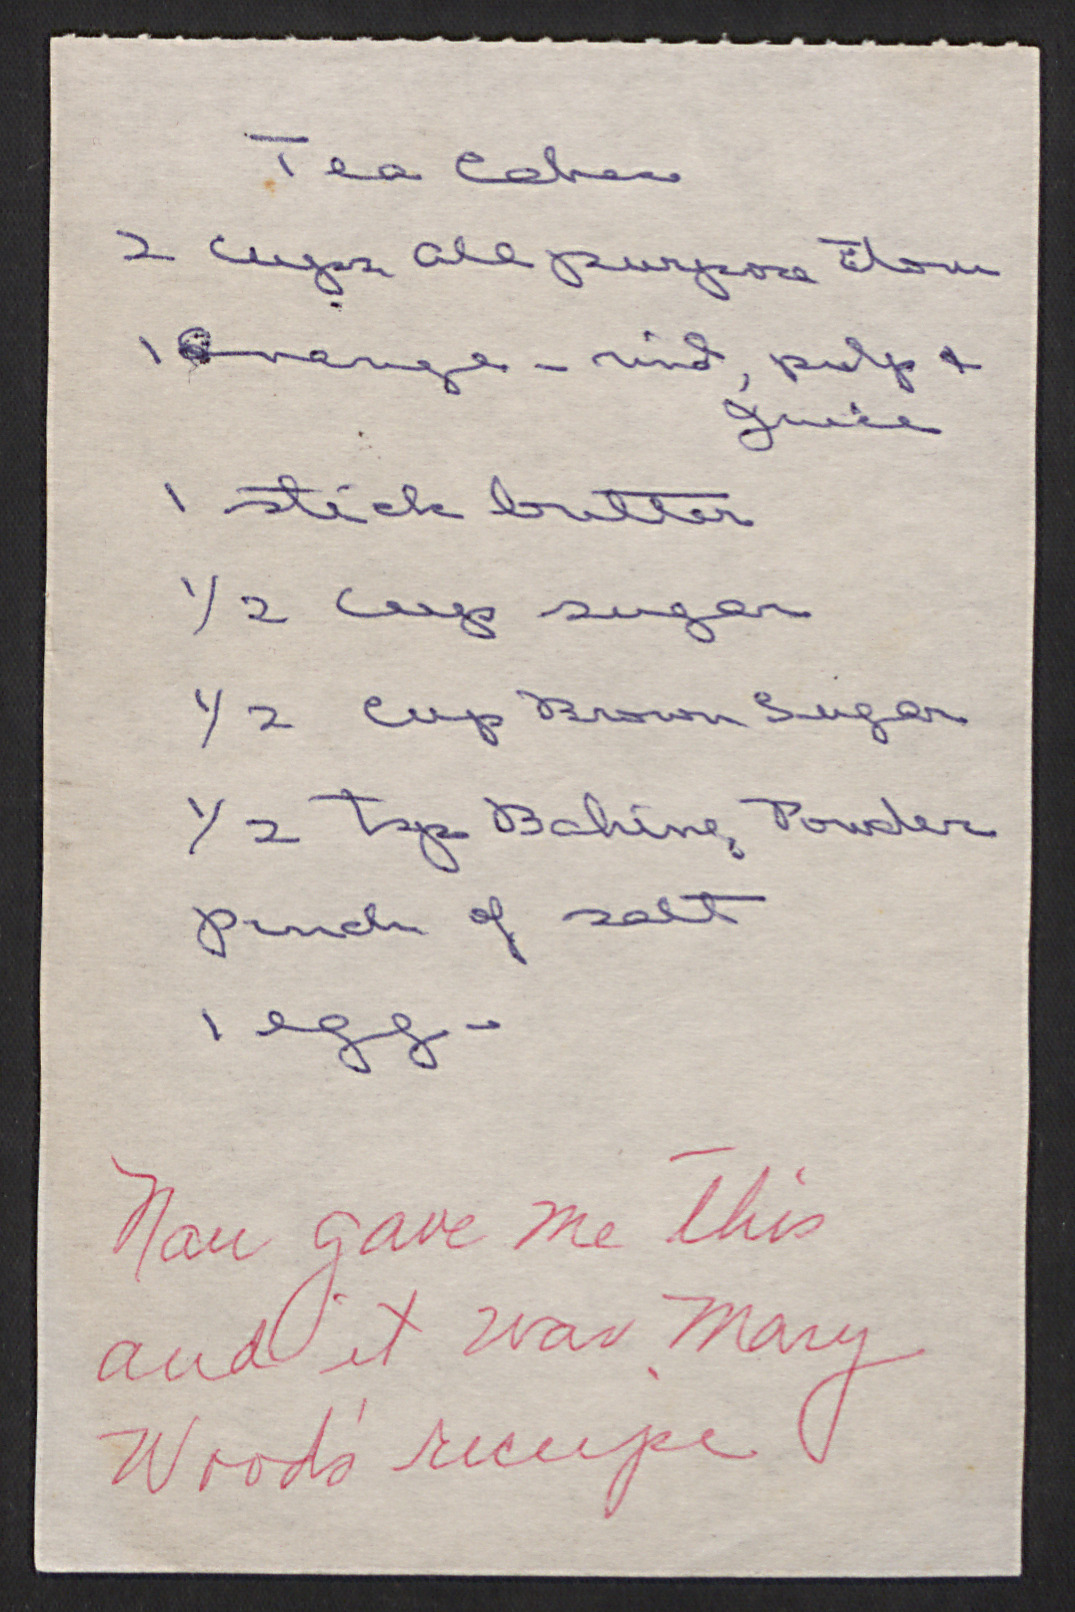 Tea Cakes
2 cups all purpose Flour
1 Orange - rind, pulp &
Juice
1 stick butter
1/2 cup sugar
1/2 cup Brown Sugar
1/2 tsp Baking Powder
pinch of salt
1 egg -
Nan gave me this
and it was Mary
Wood's receipe